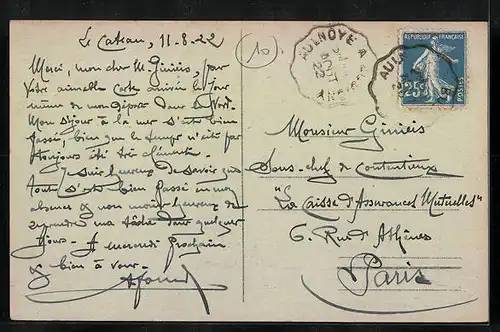 Le Cateau, 11-8-22
Merci, mon cher M. Ginieis, pour
votre aimable carte arrivée le jour
même de mon départ dans le Nord.
Mon séjour à la mer s'est bien
passé, bien que le temps n'ait pas
toujours été très clément.
Je suis heureux de savoir que
tout s'est bien passé en mon
absence & non moins heureux de
reprendre ma tâche dans quelques
jours. - A mercredi prochain
& bien à vous.
10
AULNOYE A
AOUT
22
RÉPUBLIQUE FRANÇAISE
25c
POSTES
AULN
Monsieur Ginieis
Sous-chef de Contentieux
"La Caisse d'Assurances Mutuelles"
6. Rue d'Athènes
Paris